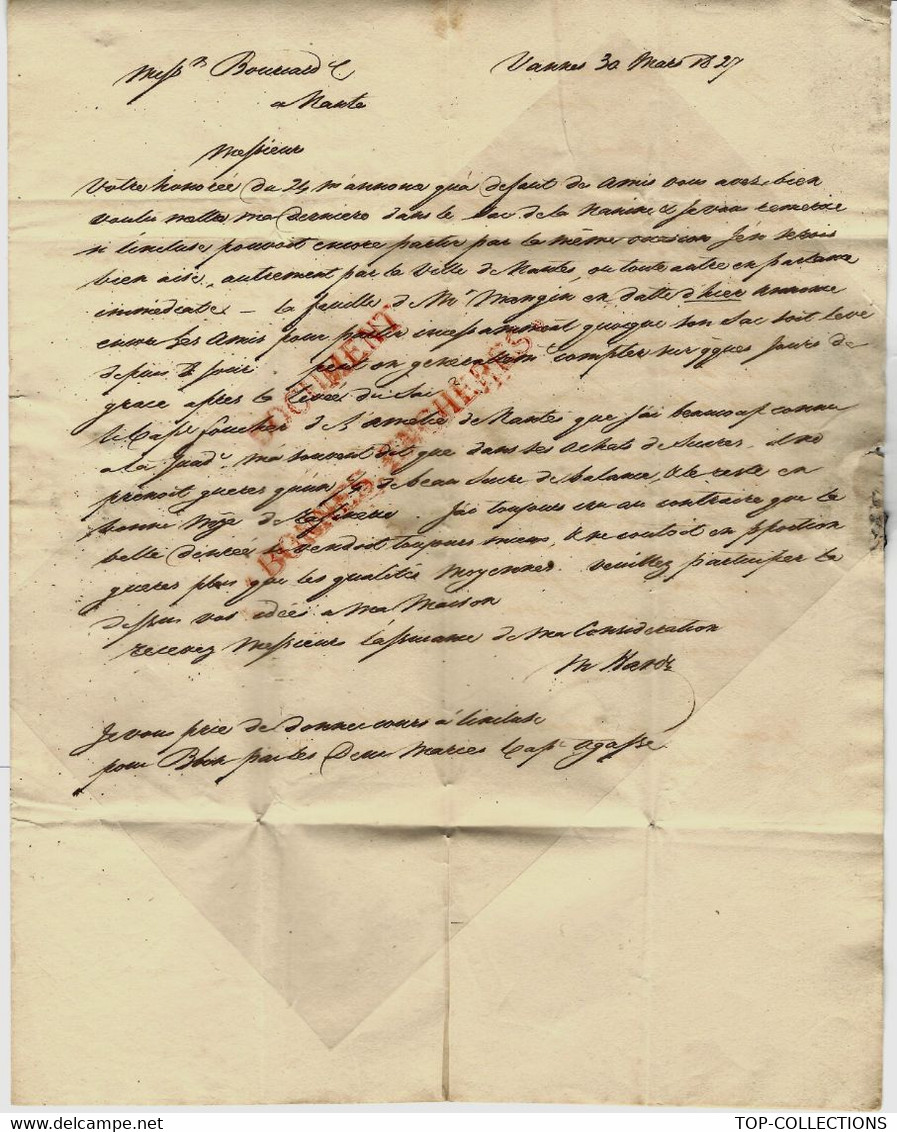 Mess rs Bourcard &c Vannes 30 Mars 1827
a Nantes
Messieurs
Votre honorée du 24 m'annonce qu'a defaut des Amis vous avez bien
voulu mettre ma derniere dans le Sac de la Nanine & je vous remercie
si l'incluse pouvoit encore partir par la même occasion j'en serois
bien aise, autrement par la Ville de Nantes, ou toute autre en partance
immediate - La feuille de Mr Mangin en datte d'hier annonce
encore les Amis pour partir incessamment quoique son Sac soit levé
depuis 8 jours. peut on generalement compter sur qques jours de
grace après la Levée du Sac?
le Cape Foucher de L'Amelie de Nantes que j'ai beaucoup connu
a La Guade m'a souvent dit que dans ses achats de Sucres il ne
prenoit gueres qu'un de beau Sucre de balance, & le reste en
bonne
J'ai toujours cru au contraire que la
belle denrée se vendoit toujours mieux, & ne coutoit en pportion
gueres plus que les qualités Moyennes. veuillez participer la
dessus vos idées a Ma Maison
recevez Messieurs l'assurance de ma Consideration
Je vous prie de donner cours à l'incluse
pour par les Deux Maries Cape Agasse
DOCUMENT
BONNES ENCHERES
TOP-COLLECTIONS